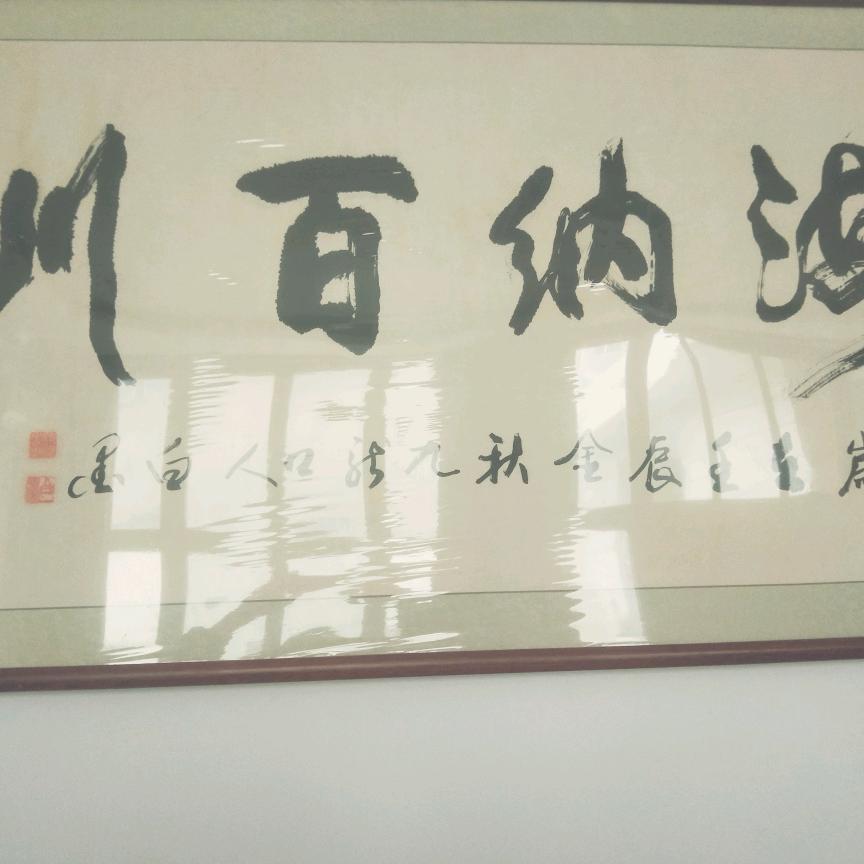 海纳百川
歲在壬辰金秋九龙口人白墨